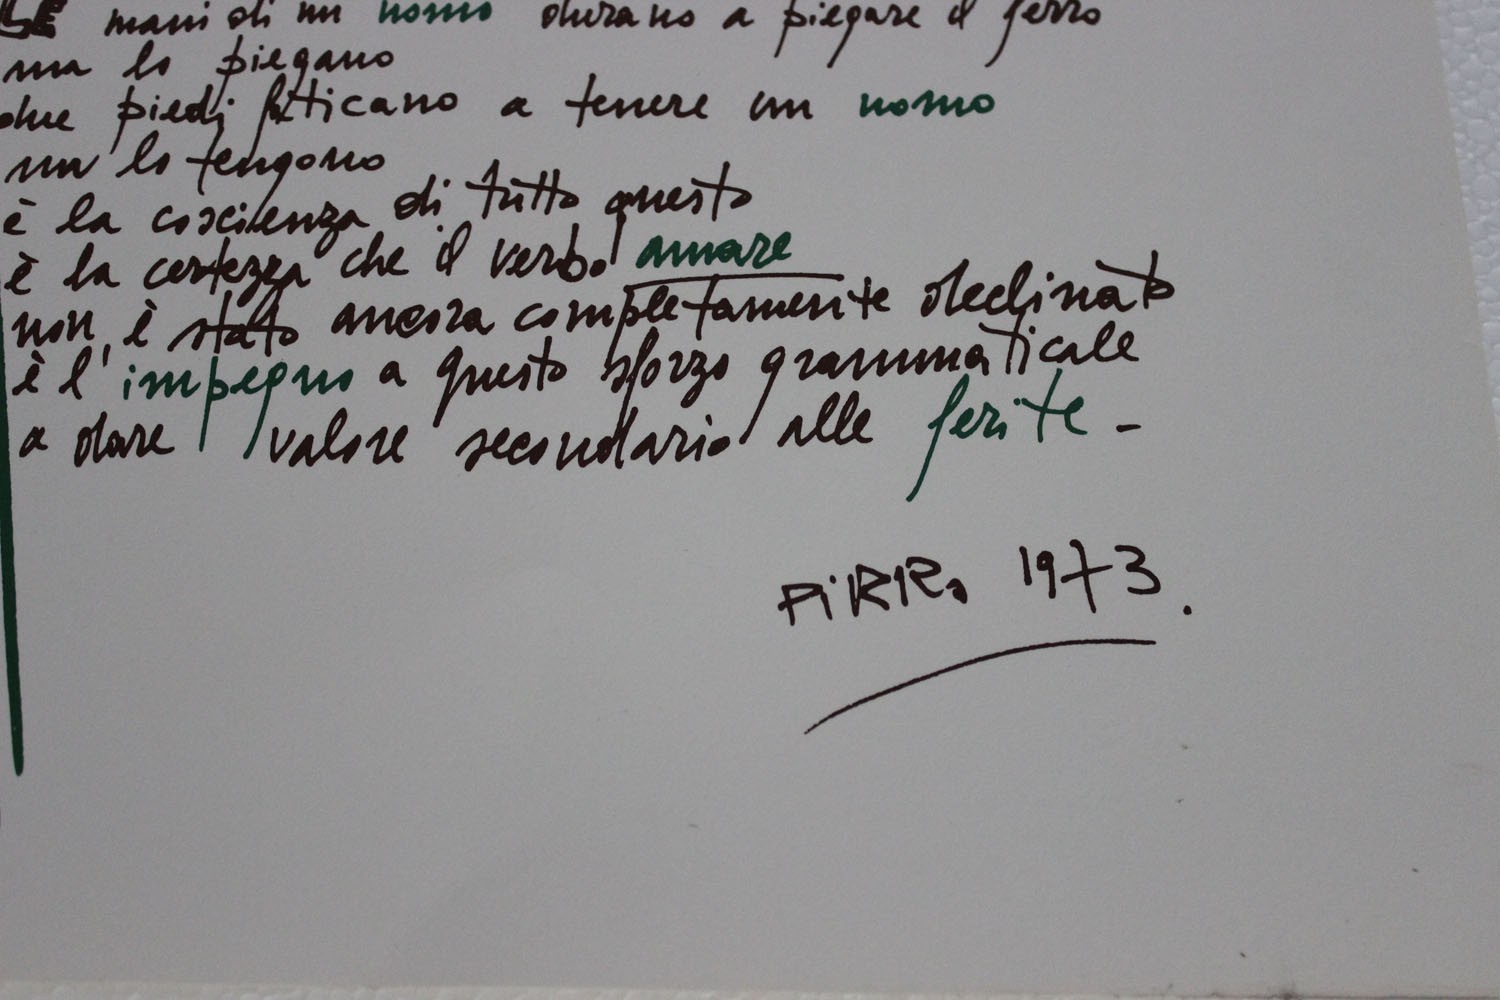 LE mani di un uomo durano a piegare il ferro
ma lo piegano
due piedi faticano a tenere un uomo
ma lo tengono
è la coscienza di tutto questo
è la certezza che il verbo amare
non è stato ancora completamente declinato
è l'impegno a questo sforzo grammaticale
a dare valore secondario alle ferite -
PiRRo 1973.